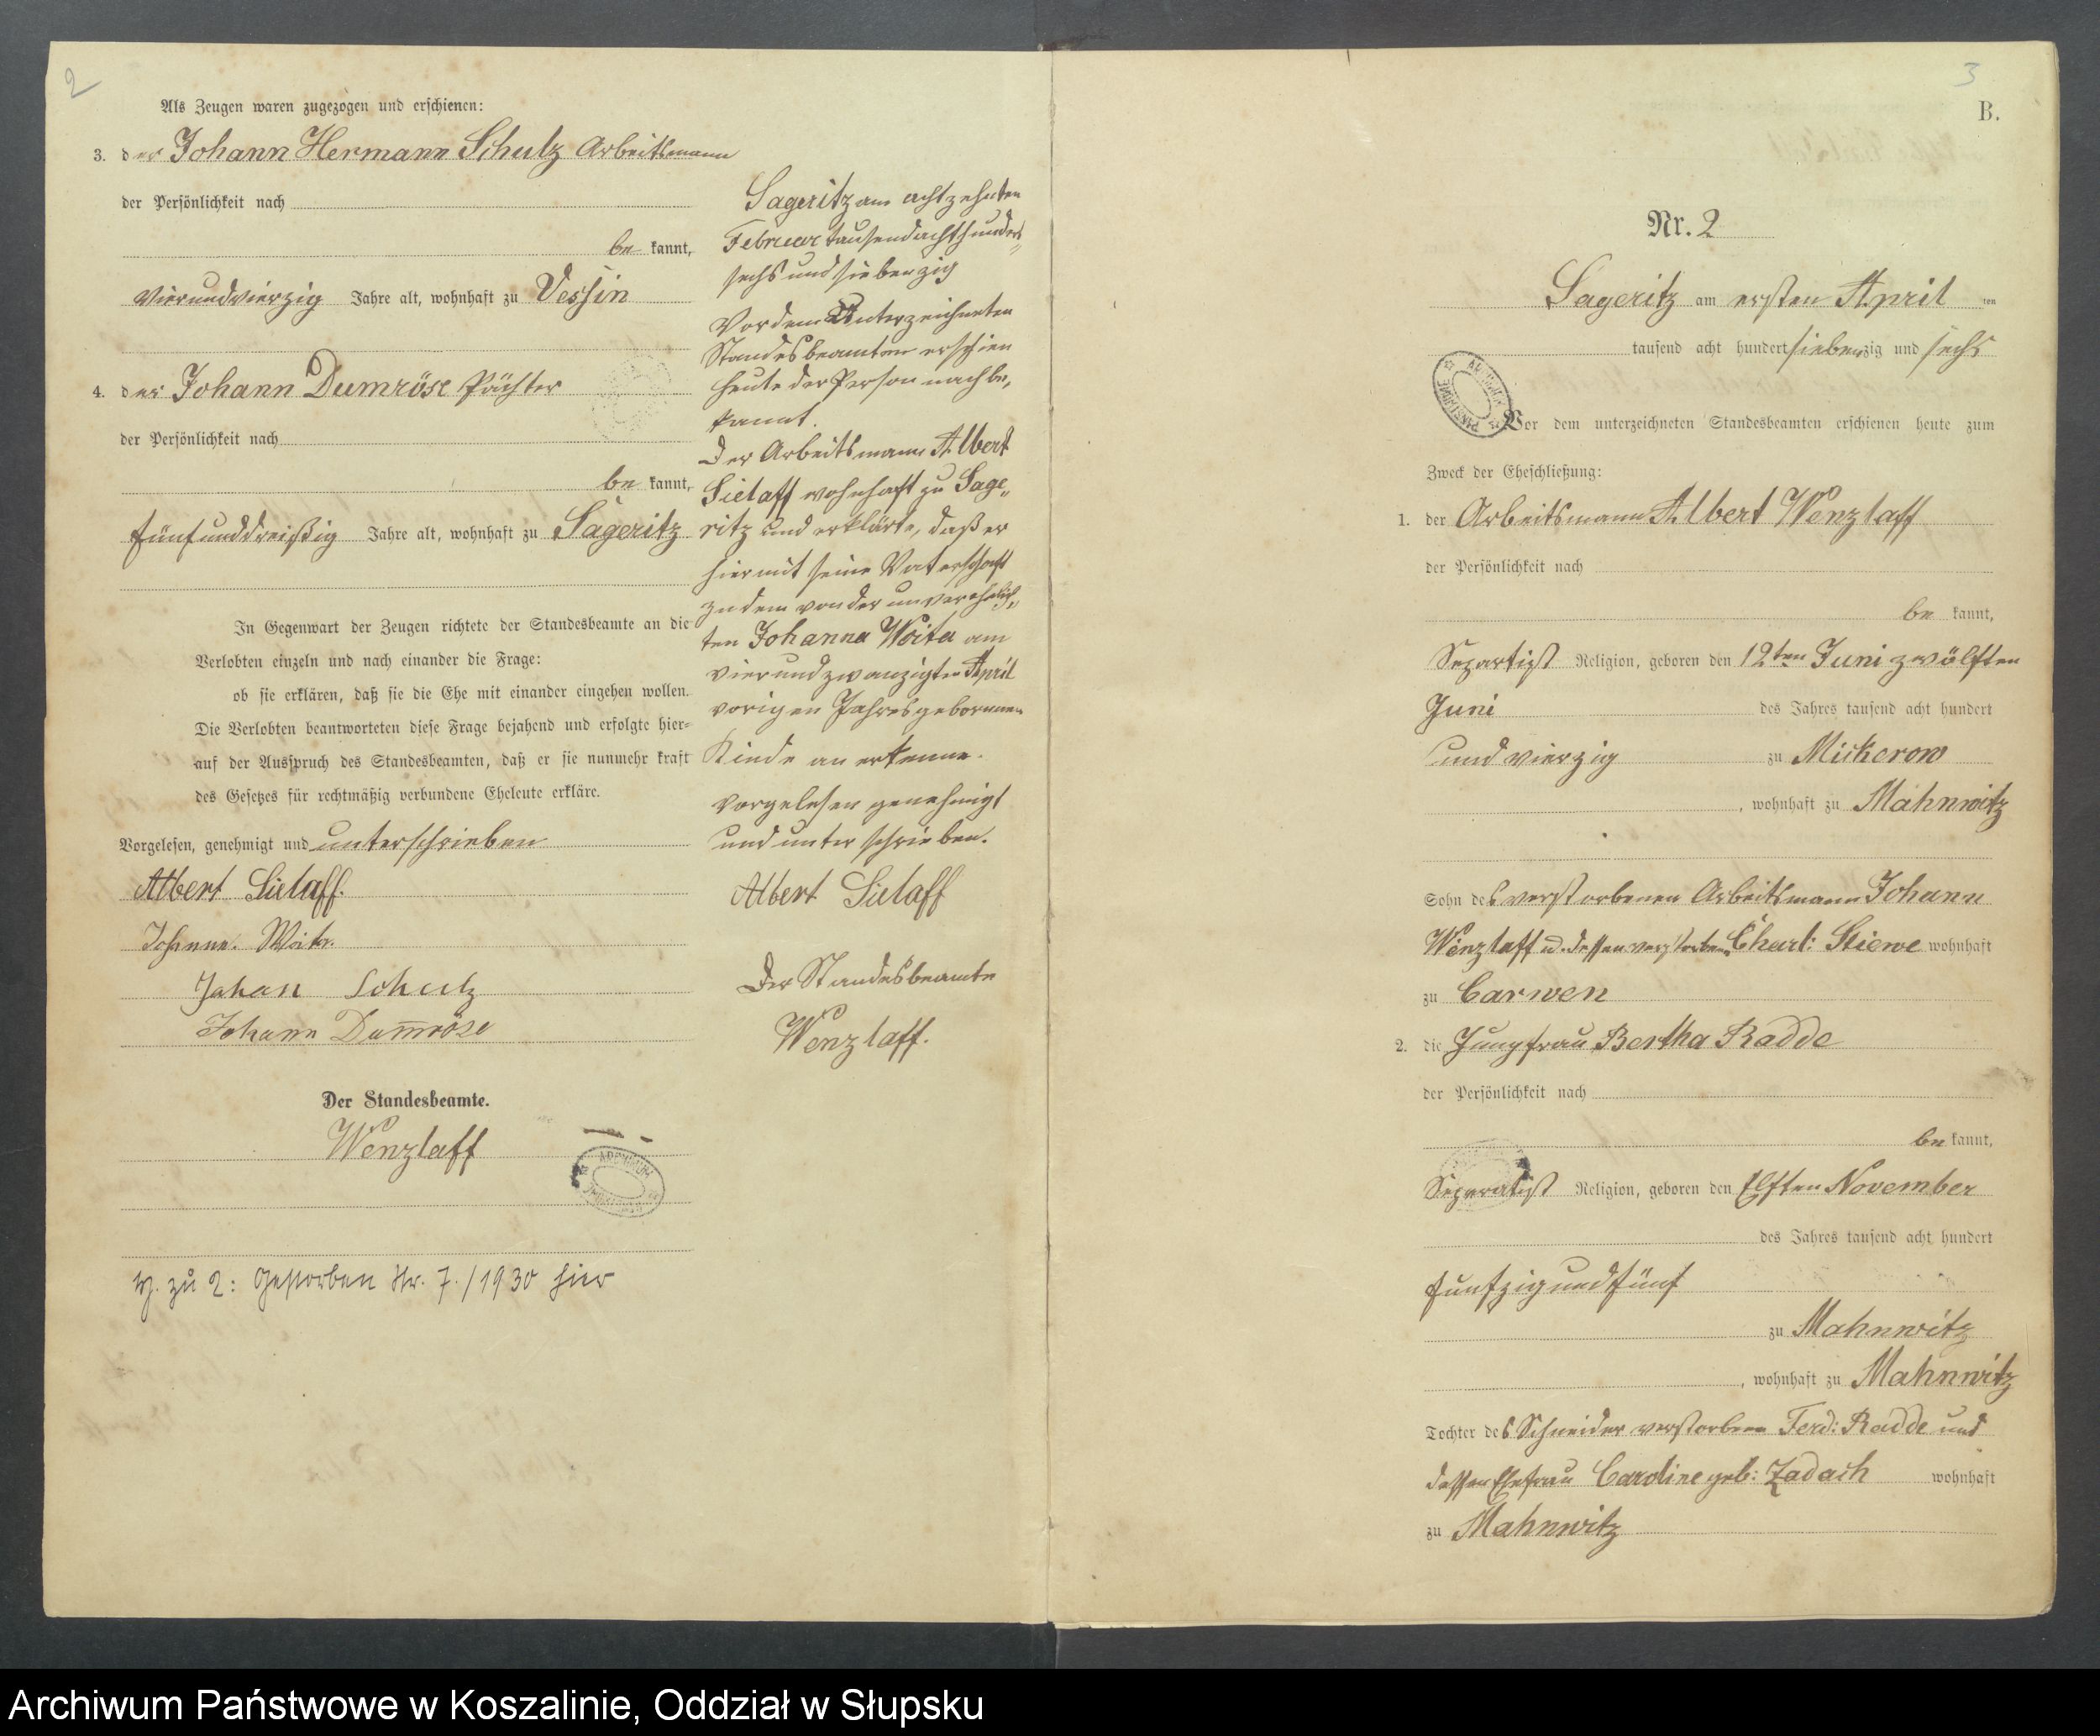 2
Als Zeugen waren zugezogen und erschienen:
3. der Johann Hermann Schulz Arbeitsmann
der Persönlichkeit nach
be kannt,
vierundvierzig Jahre alt, wohnhaft zu Vessin
4. der Johann Dumröse Pächter
der Persönlichkeit nach
be kannt,
fünfunddreißig Jahre alt, wohnhaft zu Sageritz
In Gegenwart der Zeugen richtete der Standesbeamte an die
Verlobten einzeln und nach einander die Frage:
ob sie erklären, daß sie die Ehe mit einander eingehen wollen.
Die Verlobten beantworteten diese Frage bejahend und erfolgte hier=
auf der Ausspruch des Standesbeamten, daß er sie nunmehr kraft
des Gesetzes für rechtmäßig verbundene Eheleute erkläre.
Vorgelesen, genehmigt und unterschrieben
Albert Sielaff.
Johanne. Woita.
Johan Schulz
Johann Dum̅röse
Der Standesbeamte.
Wenzlaff
H. zu 2: Gestorben Nr. 7./1930 hier
Sageritz am achtzehnten
Februar tausendachthundert
sechsundsiebenzig
Vor dem Unterzeichneten
Standesbeamten erschien
heute der Person nach be„
kannt.
Der Arbeitsmann Albert
Sielaff wohnhaft zu Sage„
ritz und erklärte, daß er
hiermit seine Vaterschaft
zu dem von der unverehelich„
ten Johanna Woita am
vierundzwanzigten April
vorigen Jahres gebornnen
Kinde an erkenne.
Vorgelesen genehmigt
und unter schrieben.
Albert Sielaff
Der Standesbeamte
Wenzlaff.
3
B.
Nr. 2
Sageritz am ersten April ten
tausend acht hundert siebenzig und sechs
Vor dem unterzeichneten Standesbeamten erschienen heute zum
Zweck der Eheschließung:
1. der Arbeitsmann Albert Wenzlaff
der Persönlichkeit nach
be kannt,
Separtist Religion, geboren den 12ten Juni zwölften
Juni des Jahres tausend acht hundert
und vierzig zu Mickerow
, wohnhaft zu Mahnwitz
Sohn des verstorbenen Arbeitsmann Johann
Wenzlaff u. dessen verstorben Charl: Stiewe wohnhaft
zu Carwen
2. die Jungfrau Bertha Radde
der Persönlichkeit nach
be kannt,
Separatist Religion, geboren den Elften November
des Jahres tausend acht hundert
fünfzig und fünf
zu Mahnwitz
, wohnhaft zu Mahnwitz
Tochter des Schneider verstorben Ferd: Radde und
dessen Ehefrau Caroline geb: Zadach wohnhaft
zu Mahnwitz
Archiwum Państwowe w Koszalinie, Oddział w Słupsku